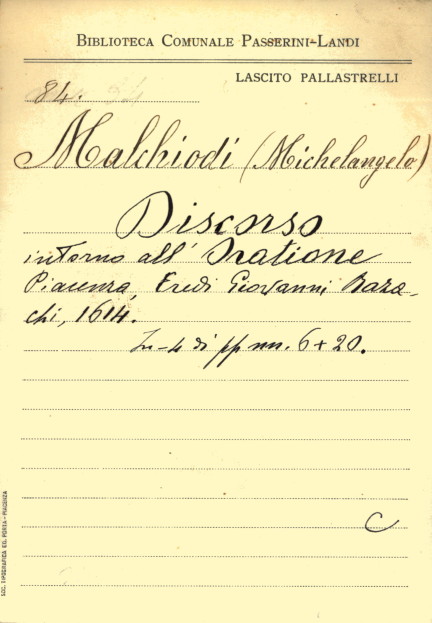 BIBLIOTECA COMUNALE PASSERINI-LANDI
LASCITO PALLASTRELLI
84.
Malchiodi (Michelangelo)
Discorso
intorno all' Oratione
Piacenza, Eredi Giovanni Baza-
chi, 1614.
In-4 di pp nn. 6+20.
C
SOC. TIPOGRAFICA ED. PORTA-PIACENZA